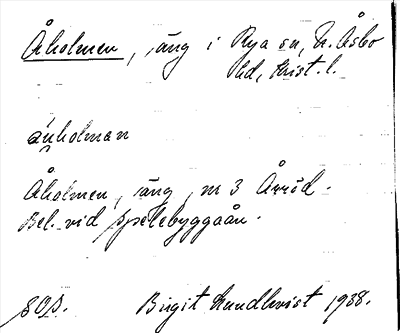 Åholmen, äng i Rya sn, N. Åsbo
hd, Krist. l.
Åholmen, äng, nr 3 Åvröd.
Bel. vid Spelebyggaån.
SOS. Birgit Lundkvist 1938.